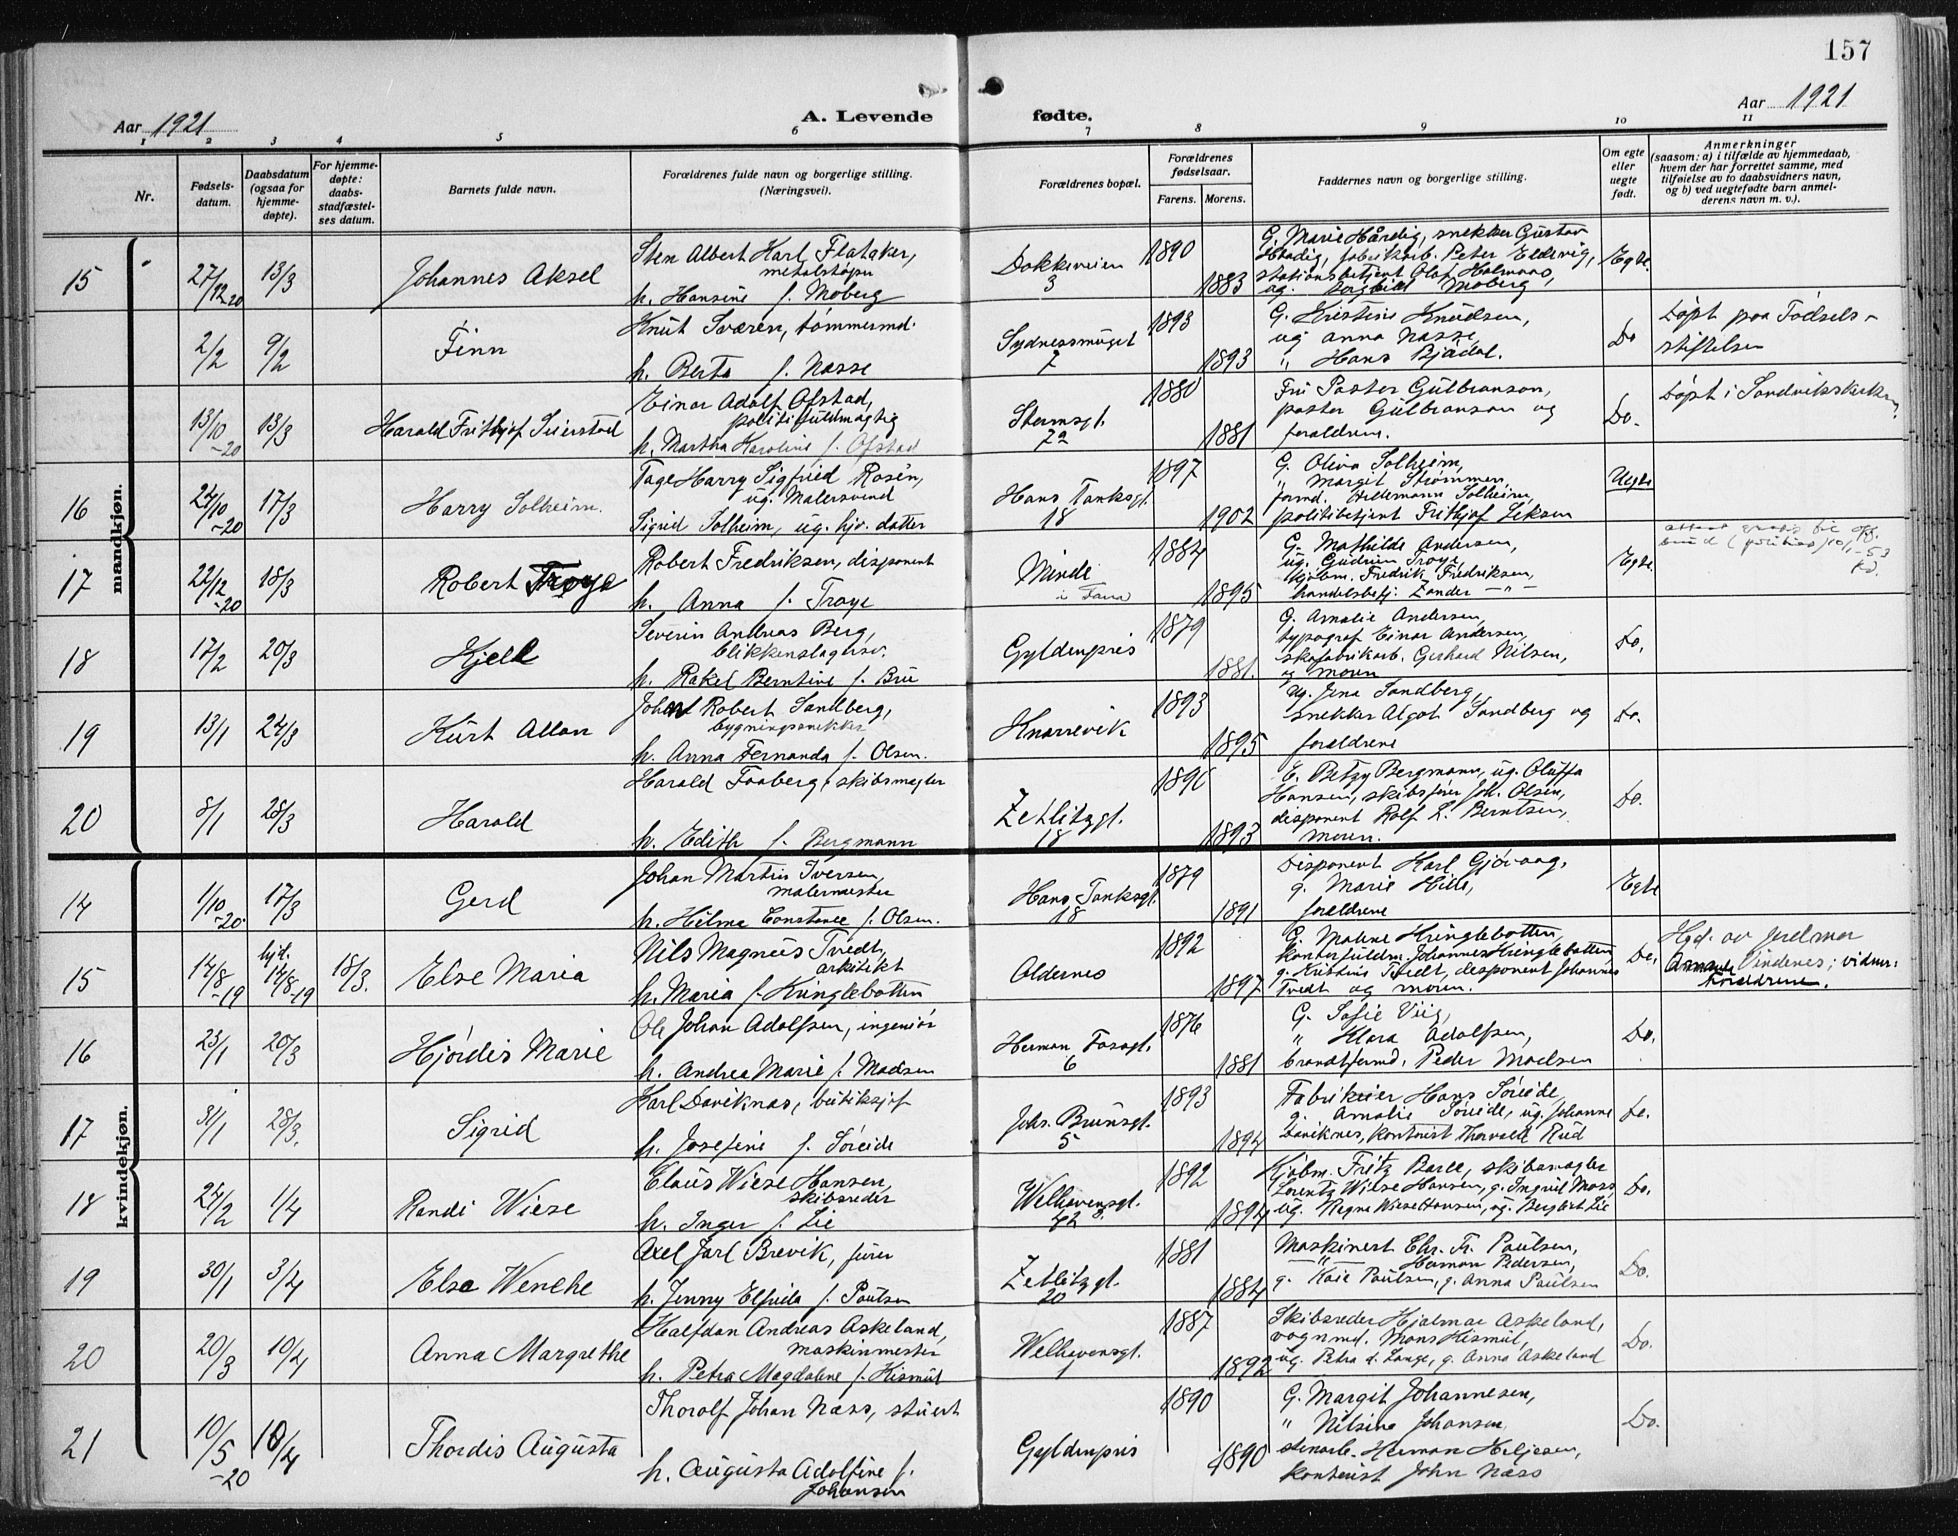 157
Aar 1921
A. Levende fødte.
Aar 1921
1 2 3 4 5 6 7 8 9 10 11
Nr.
Fødsels-
datum.
Daabsdatum
(ogsaa for
hjemme-
døpte).
For hjemme-
døpte:
daabs-
stadfæstel-
ses datum.
Barnets fulde navn.
Forældrenes fulde navn og borgerlige stilling.
(Næringsvei).
Forældrenes bopæl.
Forældrenes
fødselsaar.
Farens. Morens.
Faddernes navn og borgerlige stilling.
Om egte
eller
uegte
født.
Anmerkninger
(saasom: a) i tilfælde av hjemmedaab,
hvem der har forrettet samme, med
tilføielse av to daabsvidners navn,
og b) ved uegtefødte barn anmel-
derens navn m. v.).
mandkjøn.
15 27/12 20 13/3 Johannes Aksel
Sten Albert Karl Flataker,
metalstøper
h. Hansine f. Moberg
Dokkeveien
3
1890
1883
G. Marie Hårdig, snekker Gustav
Hårdig, fabrikarb. Peter Eldevig,
stationsbetjent Olaf Holmaas,
ug. Moberg
Egte.
2/2 9/2 Finn
Knut Sværen, tømmermd.
h. Berta f. Nasse
Sydnessmuget
7
1893
1893
G. Kristine Knudsen,
ug Anna Nasse,
" Hans Bjådal.
Do
Døpt paa Fødsels-
stiftelsen
13/10 -20 13/3 Harald Frithjof Seierstad
Einar Adolf Ofstad,
politifuldmægtig
h. Martha Karoline f. Ofstad
Stormsgt.
72
1880
1881
Fru Pastor Gulbranson,
pastor Gulbranson og
forældrene.
Do.
Døpt i Sandvikskirken.
16 24/10 -20 17/3 Harry Solheim.
Tage Harry Sigfried Rosén,
ug. Malersvend
Sigrid Solheim, ug. hjv. datter
Hans Tanksgt.
18
1897
1902
G. Oliva Solheim,
" Margit Strømmen,
formd. Hildemann Solheim,
politibetjent Frithjof Eiksen
Uegte
17 22/12 -20 18/3 Robert Troye
Robert Fredriksen, disponent
h. Anna f. Troye
Minde
i Fana
1884
1895
G. Mathilde Andersen,
ug. Gudrun Troye,
kjøbm. Fredrik Fredriksen,
handelsbetj. Zander -"-
Egte.
18 17/2 20/3 Kjell
Severin Andreas Berg,
blikkenslagersv.
h. Rakel Berntine f. Bru
Gyldenpris
1879
1881.
G. Amalie Andersen,
typograf Einar Andersen,
skofabrikarb. Gerhard Nilsen,
og moren
Do.
19 13/1 24/3 Kurt Allan
John Robert Sandberg,
bygningssnekker
h. Anna Fernanda f. Olsen.
Knarrevik
1893
1895
Ug. Jena Sandberg,
snekker Algot Sandberg og
forældrene
Do.
20 8/1 28/3 Harald
Harald Faaberg, skibsmegler
h. Edith f. Bergmann
Zetlitzgt.
18
1893
E. Betzy Bergmann, ug. Oluffa
Hansen, skibsfører Joh. Olsen,
disponent Rolf L. Berntsen,
moren.
Do.
kvindekjøn.
14 1/10 -20 17/3 Gerd
Johan Martin Iversen,
malermester
h. Helma Constance f. Olsen.
Hans Tanksgt.
18
1879
1891
Disponent Karl Gjøvaag,
g. Marie Hille,
forældrene
Egte
15 14/8 -19 hjd. 14/8 -19 18/3. Else Maria
Nils Magnus Tvedt,
arkitekt
h. Maria f. Kringlebotten
Oldernes
1892
1897
G. Malene Kringlebotten,
kontorfuldm. Johannes Kringlebotten,
g. Kristine Tvedt, disponent Johannes
Tvedt og moren.
Do.
Hjd. av jordmor
Vindenes; vidner:
Forældrene.
16 23/1 20/3 Hjørdis Marie
Ole Johan Adolfsen, ingeniør
h. Andrea Marie f. Madsen
Herman Fossgt.
6
1876
1881
G. Sofie Viig,
" Klara Adolfsen,
brandformd. Peder Madsen
Do.
17 31/1 28/3. Sigrid
Karl Daviknes, butiksjef
h. Josefine f. Søreide
Johs. Brunsgt.
5
1893
1894
Fabrikeier Hans Søreide,
g. Amalie Søreide, ug. Johanne
Daviknes, kontorist Thorvald Rud
Do.
18 24/2 1/4 Randi Wiese
Claus Wiese Hansen,
skibsreder
h. Inger f. Lie
Welhavensgt.
42
1892
1894
Kjøbm. Fritz Baree, skibsmegler
Lorentz Wiese Hansen, g. Ingrid Moss,
ug. Ragna Wiese Hansen, ug. Bergliot Lie
Do.
19 30/1 3/4 Else Wenche
Axel Jarl Brevik, fører
h. Jenny Elfrida f. Paulsen
Zetlitzgt.
20
1881
1884
Maskinist Chr. Fr. Paulsen,
-"- Herman Pedersen,
g. Kaie Paulsen, g. Anna Paulsen
Do.
20 20/3 10/4 Anna Margrethe
Halfdan Andreas Askeland,
maskinmester
h. Petra Magdalene f. Hismul
Welhavensgt.
1887
1892
Skibsreder Hjalmar Askeland,
vognmd. Mons Hismul,
ug. Petra d. Lange, g. Anna Askeland
Do.
21 10/5 -20 10/4 Thordis Augusta
Thorolf Johan Næss, stuert
h. Augusta Adolfine f.
Johansen
Gyldenpris
1890
1890
G. Margit Johannesen,
" Nilsine Johansen
stenarb. Herman Heljesen,
kontorist John Næss
Do.